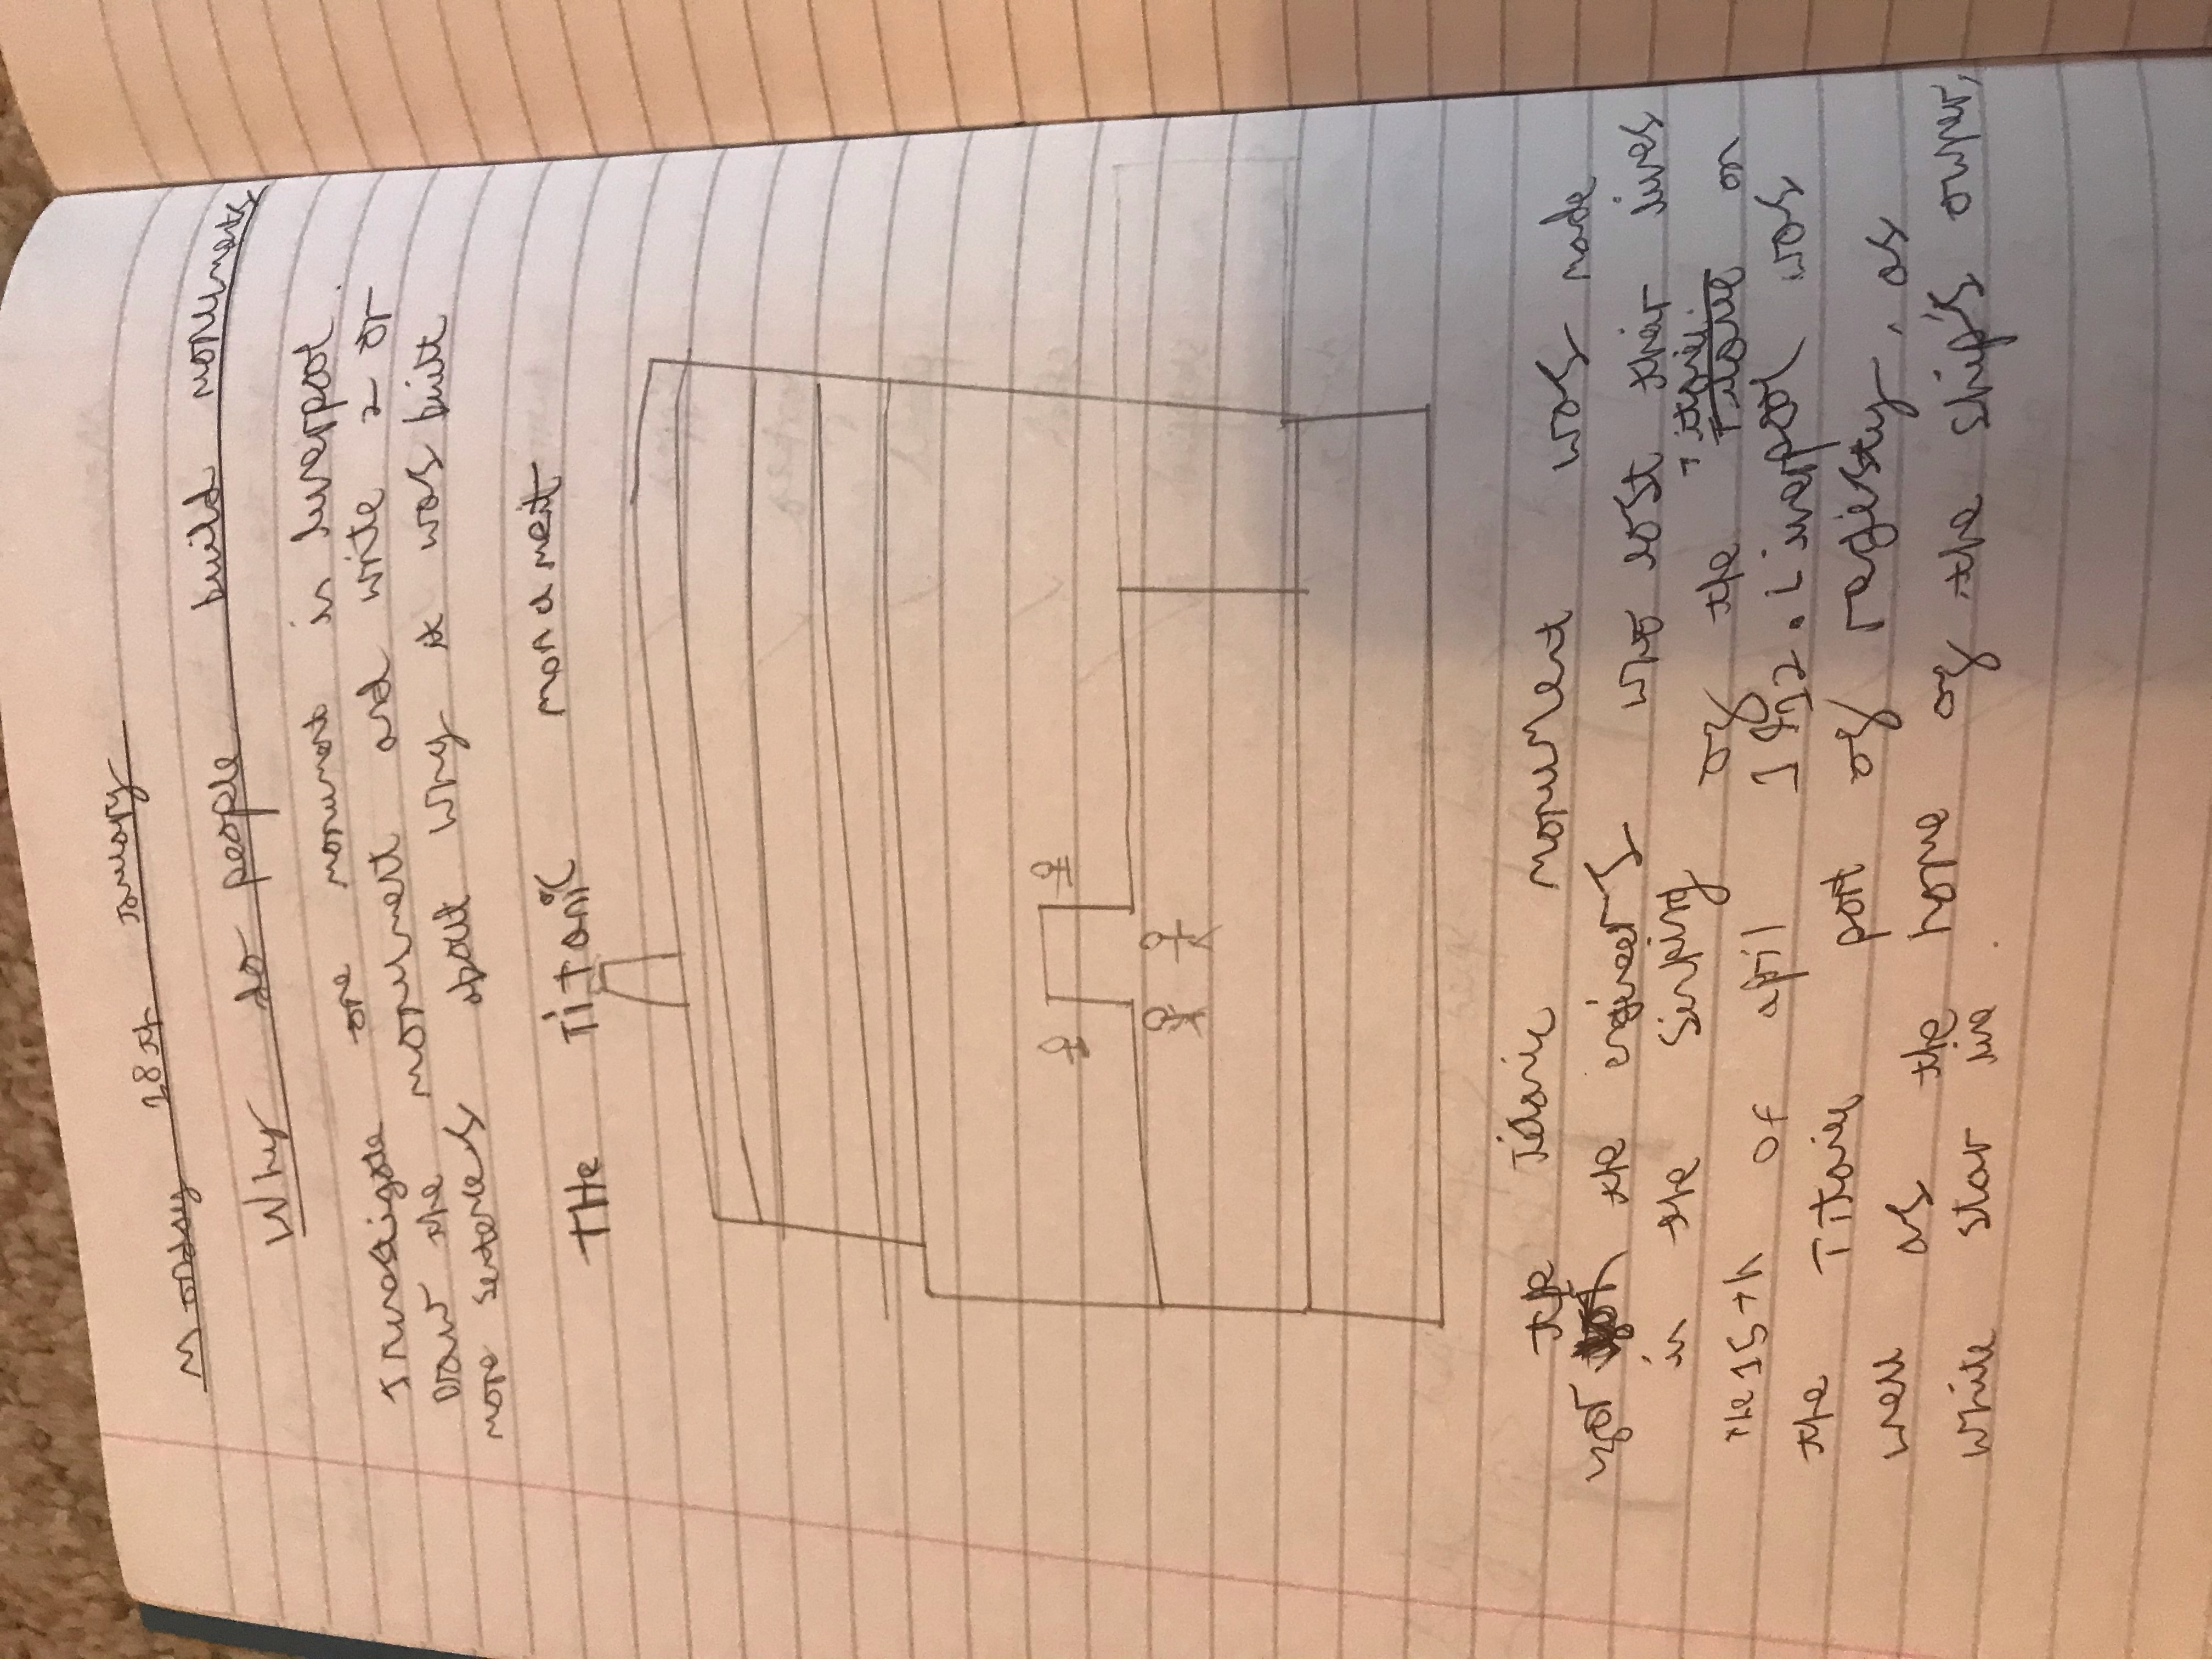 Monday 28th January
Why do people build monuments
Investigate one monument in liverpool.
Draw the monument and write 2 or
more sentences about why it was built
THe Titanic monament
the Titanic monument was made
for the engineers who lost their lives
in the sinking of the Titanic on
the 15th of april 1912. Liverpool was
the Titanics port of regjesty, as
well as the home of the ship's owner,
white star line.